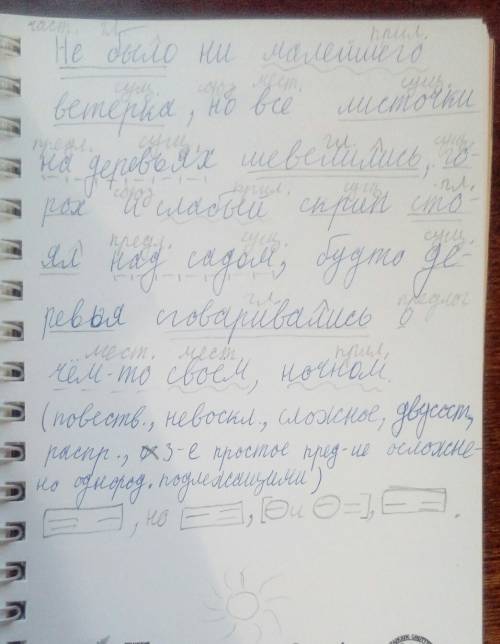 част. гл. прил.
Не было ни малейшего
сущ. союз мест. сущ.
ветерка, но все листочки
предл. сущ. гл. сущ.
на деревьях шевелились,
союз прил. сущ. гл.
рох и слабый скрип сто-
предл. сущ. сущ.
ял над садом, будто де-
гл. предлог
ревья сговаривались о
мест. мест. прил.
чём-то своём, ночном.
(повеств., невоскл., сложное, двусост.,
распр., 3-е простое пред-ие осложне-
но однород. подлежащими)
, но , [ и ], .